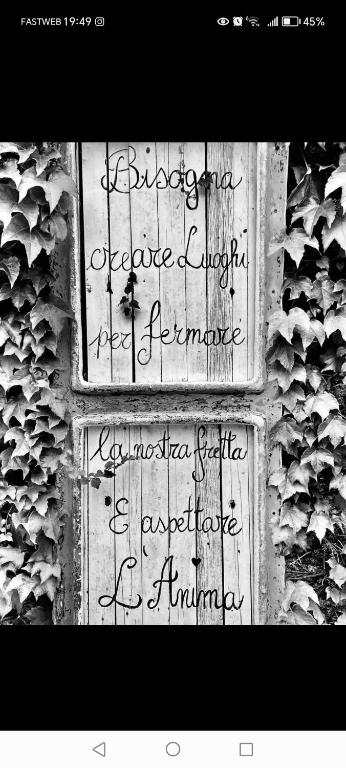 FASTWEB 19:49 45%
Bisogna
creare Luoghi
per fermare
la nostra fretta
E aspettare
L'Anima